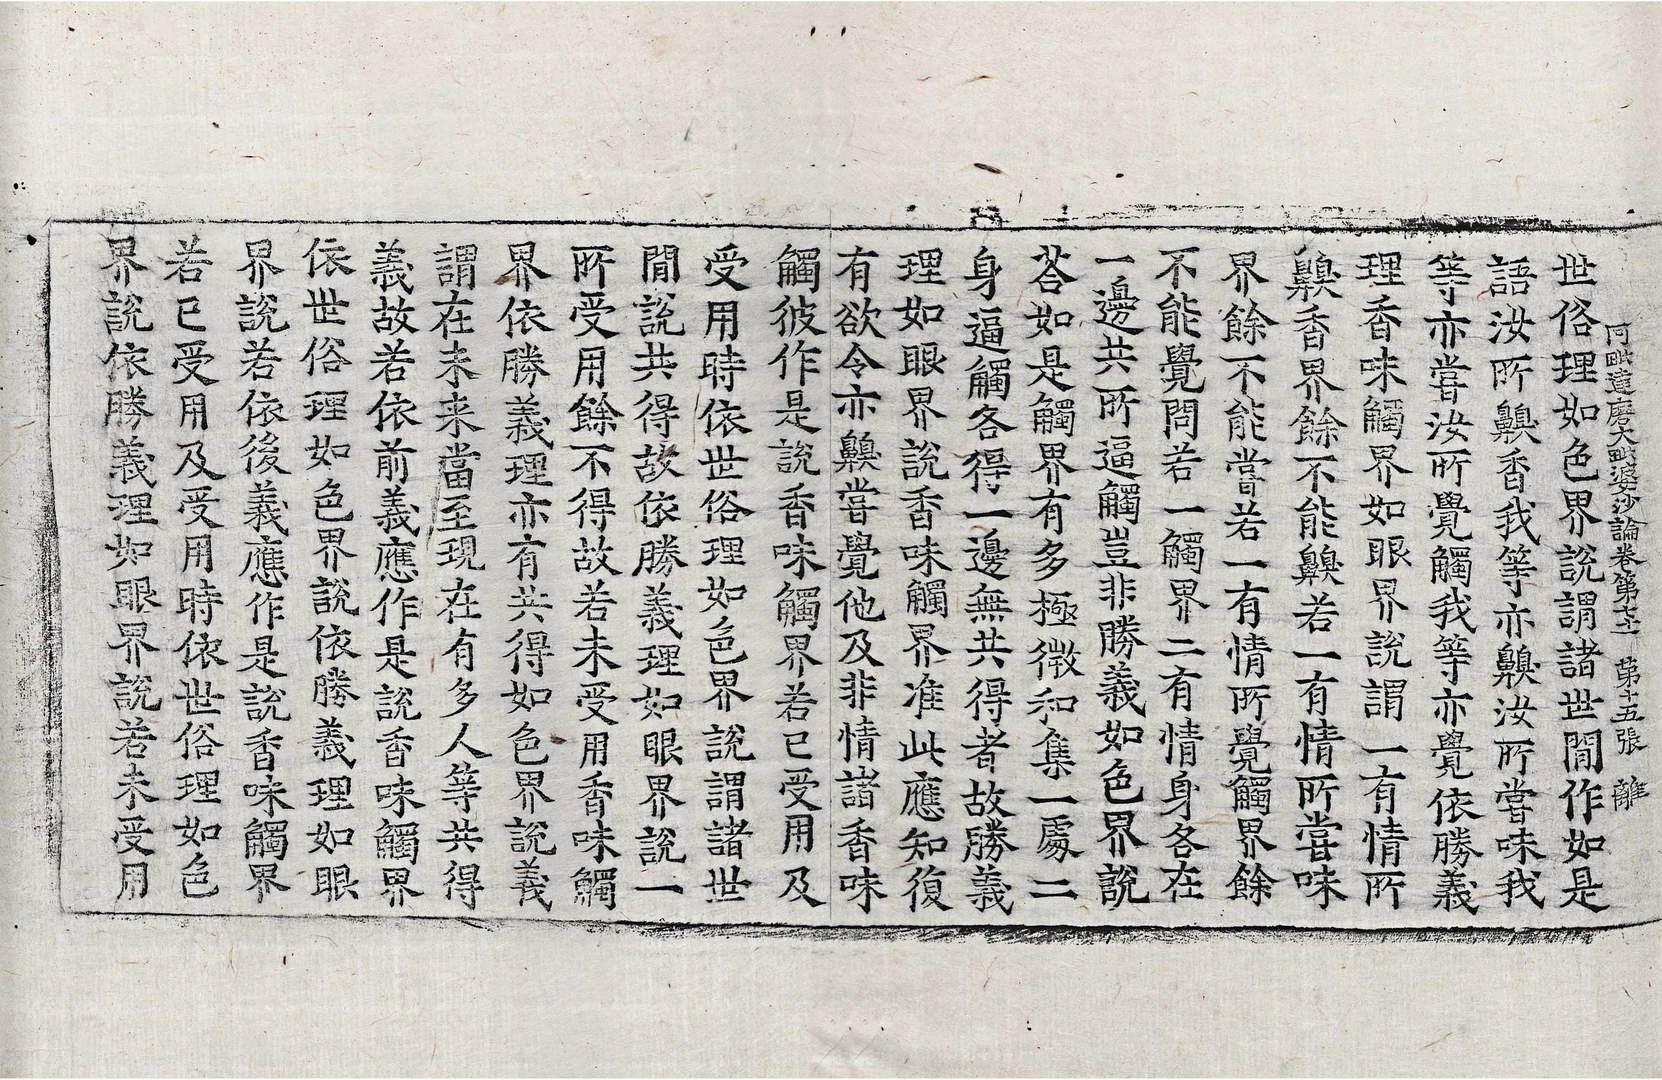 阿毗達磨大毗婆沙論卷第十三 第十五張 離
世俗理如色界說謂諸世間作如是
語汝所齅香我等亦齅汝所嘗味我
等亦嘗汝所覺觸我等亦覺依勝義
理香味觸界如眼界說謂一有情所
齅香界餘不能齅若一有情所嘗味
界餘不能嘗若一有情所覺觸界餘
不能覺問若一觸界二有情身各在
一邊共所逼觸豈非勝義如色界說
荅如是觸界有多極微和集一處二
身逼觸各得一邊無共得者故勝義
理如眼界說香味觸界准此應知復
有欲令亦齅嘗覺他及非情諸香味
觸彼作是說香味觸界若已受用及
受用時依世俗理如色界說謂諸世
間說共得故依勝義理如眼界說一
所受用餘不得故若未受用香味觸
界依勝義理亦有共得如色界說義
謂在未来當至現在有多人等共得
義故若依前義應作是說香味觸界
依世俗理如色界說依勝義理如眼
界說若依後義應作是說香味觸界
若已受用及受用時依世俗理如色
界說依勝義理如眼界說若未受用